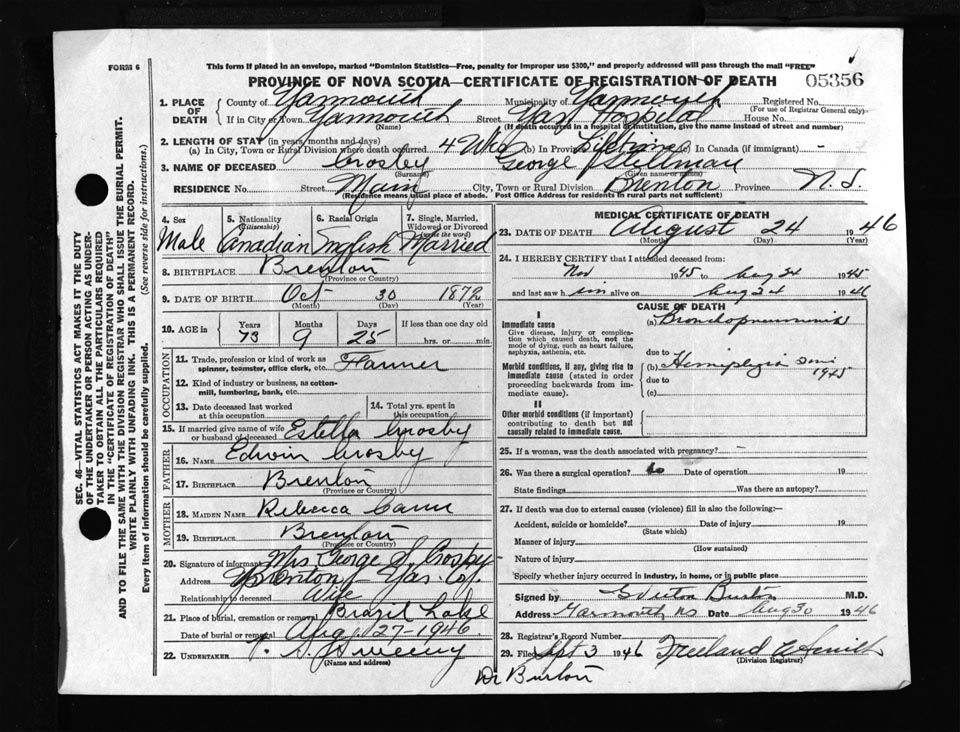 FORM 6
This form if placed in an envelope, marked "Dominion Statistics—Free, penalty for improper use $300," and properly addressed will pass through the mail "FREE"
PROVINCE OF NOVA SCOTIA—CERTIFICATE OF REGISTRATION OF DEATH 05356
1. PLACE OF DEATH County of Yarmouth Municipality of Yarmouth Registered No.
(For use of Registrar General only)
If in City or Town Yarmouth Street Yar Hospital House No.
(Name) (If death occurred in a hospital or institution, give the name instead of street and number)
2. LENGTH OF STAY (in years, months and days)
(a) In City, Town or Rural Division where death occurred 4 Wks (b) In Province Lifetime (c) In Canada (if immigrant) -
3. NAME OF DECEASED Crosby George Stillman
(Surname) (Given name or names)
RESIDENCE No. Street Main City, Town or Rural Division Brenton Province N.S.
(Residence means usual place of abode. Post Office Address for residents in rural parts not sufficient)
SEC. 46—VITAL STATISTICS ACT MAKES IT THE DUTY
OF THE UNDERTAKER OR PERSON ACTING AS UNDER-
TAKER TO OBTAIN ALL THE PARTICULARS REQUIRED
IN THE "CERTIFICATE OF REGISTRATION OF DEATH"
AND TO FILE THE SAME WITH THE DIVISION REGISTRAR WHO SHALL ISSUE THE BURIAL PERMIT.
WRITE PLAINLY WITH UNFADING INK. THIS IS A PERMANENT RECORD.
Every item of information should be carefully supplied. (See reverse side for instructions.)
4. Sex 5. Nationality (Citizenship) 6. Racial Origin 7. Single, Married, Widowed or Divorced (write the word)
Male Canadian English Married
8. BIRTHPLACE Brenton
(Province or Country)
9. DATE OF BIRTH Oct 30 1872
(Month) (Day) (Year)
10. AGE in Years Months Days If less than one day old
73 9 25 hrs. or min.
OCCUPATION
11. Trade, profession or kind of work as spinner, teamster, office clerk, etc. Farmer
12. Kind of industry or business, as cotton-mill, lumbering, bank, etc.
13. Date deceased last worked at this occupation 14. Total yrs. spent in this occupation
15. If married give name of wife or husband of deceased Estella Crosby
FATHER
16. NAME Edwin Crosby
17. BIRTHPLACE Brenton
(Province or Country)
MOTHER
18. MAIDEN NAME Rebecca Cann
19. BIRTHPLACE Brenton
(Province or Country)
20. Signature of informant Mrs George S. Crosby
Address Brenton - Yar. Co.
Relationship to deceased Wife
21. Place of burial, cremation or removal Brazil Lake
Date of burial or removal Aug 27-1946
22. UNDERTAKER Sweeny
(Name and address)
MEDICAL CERTIFICATE OF DEATH
23. DATE OF DEATH August 24 1946
(Month) (Day) (Year)
24. I HEREBY CERTIFY that I attended deceased from:
Nov 1945 to Aug 24 1945
and last saw him alive on Aug 24 1946
CAUSE OF DEATH
I
Immediate cause (a) Bronchopneumonia
Give disease, injury or complication which caused death, not the mode of dying, such as heart failure, asphyxia, asthenia, etc.
due to
Morbid conditions, if any, giving rise to immediate cause (stated in order proceeding backwards from immediate cause). (b) Hemiplegia 1945
due to
(c)
II
Other morbid conditions (if important) contributing to death but not causally related to immediate cause.
25. If a woman, was the death associated with pregnancy?
26. Was there a surgical operation? No Date of operation 19
State findings Was there an autopsy?
27. If death was due to external causes (violence) fill in also the following:—
Accident, suicide or homicide? Date of injury 19
(State which)
Manner of injury
(How sustained)
Nature of injury
Specify whether injury occurred in industry, in home, or in public place
Signed by Burton M.D.
Address Yarmouth, NS Date Aug 30 1946
28. Registrar's Record Number
29. Filed Sept 3 1946 Freeland Smith
(Division Registrar)
Dr Burton